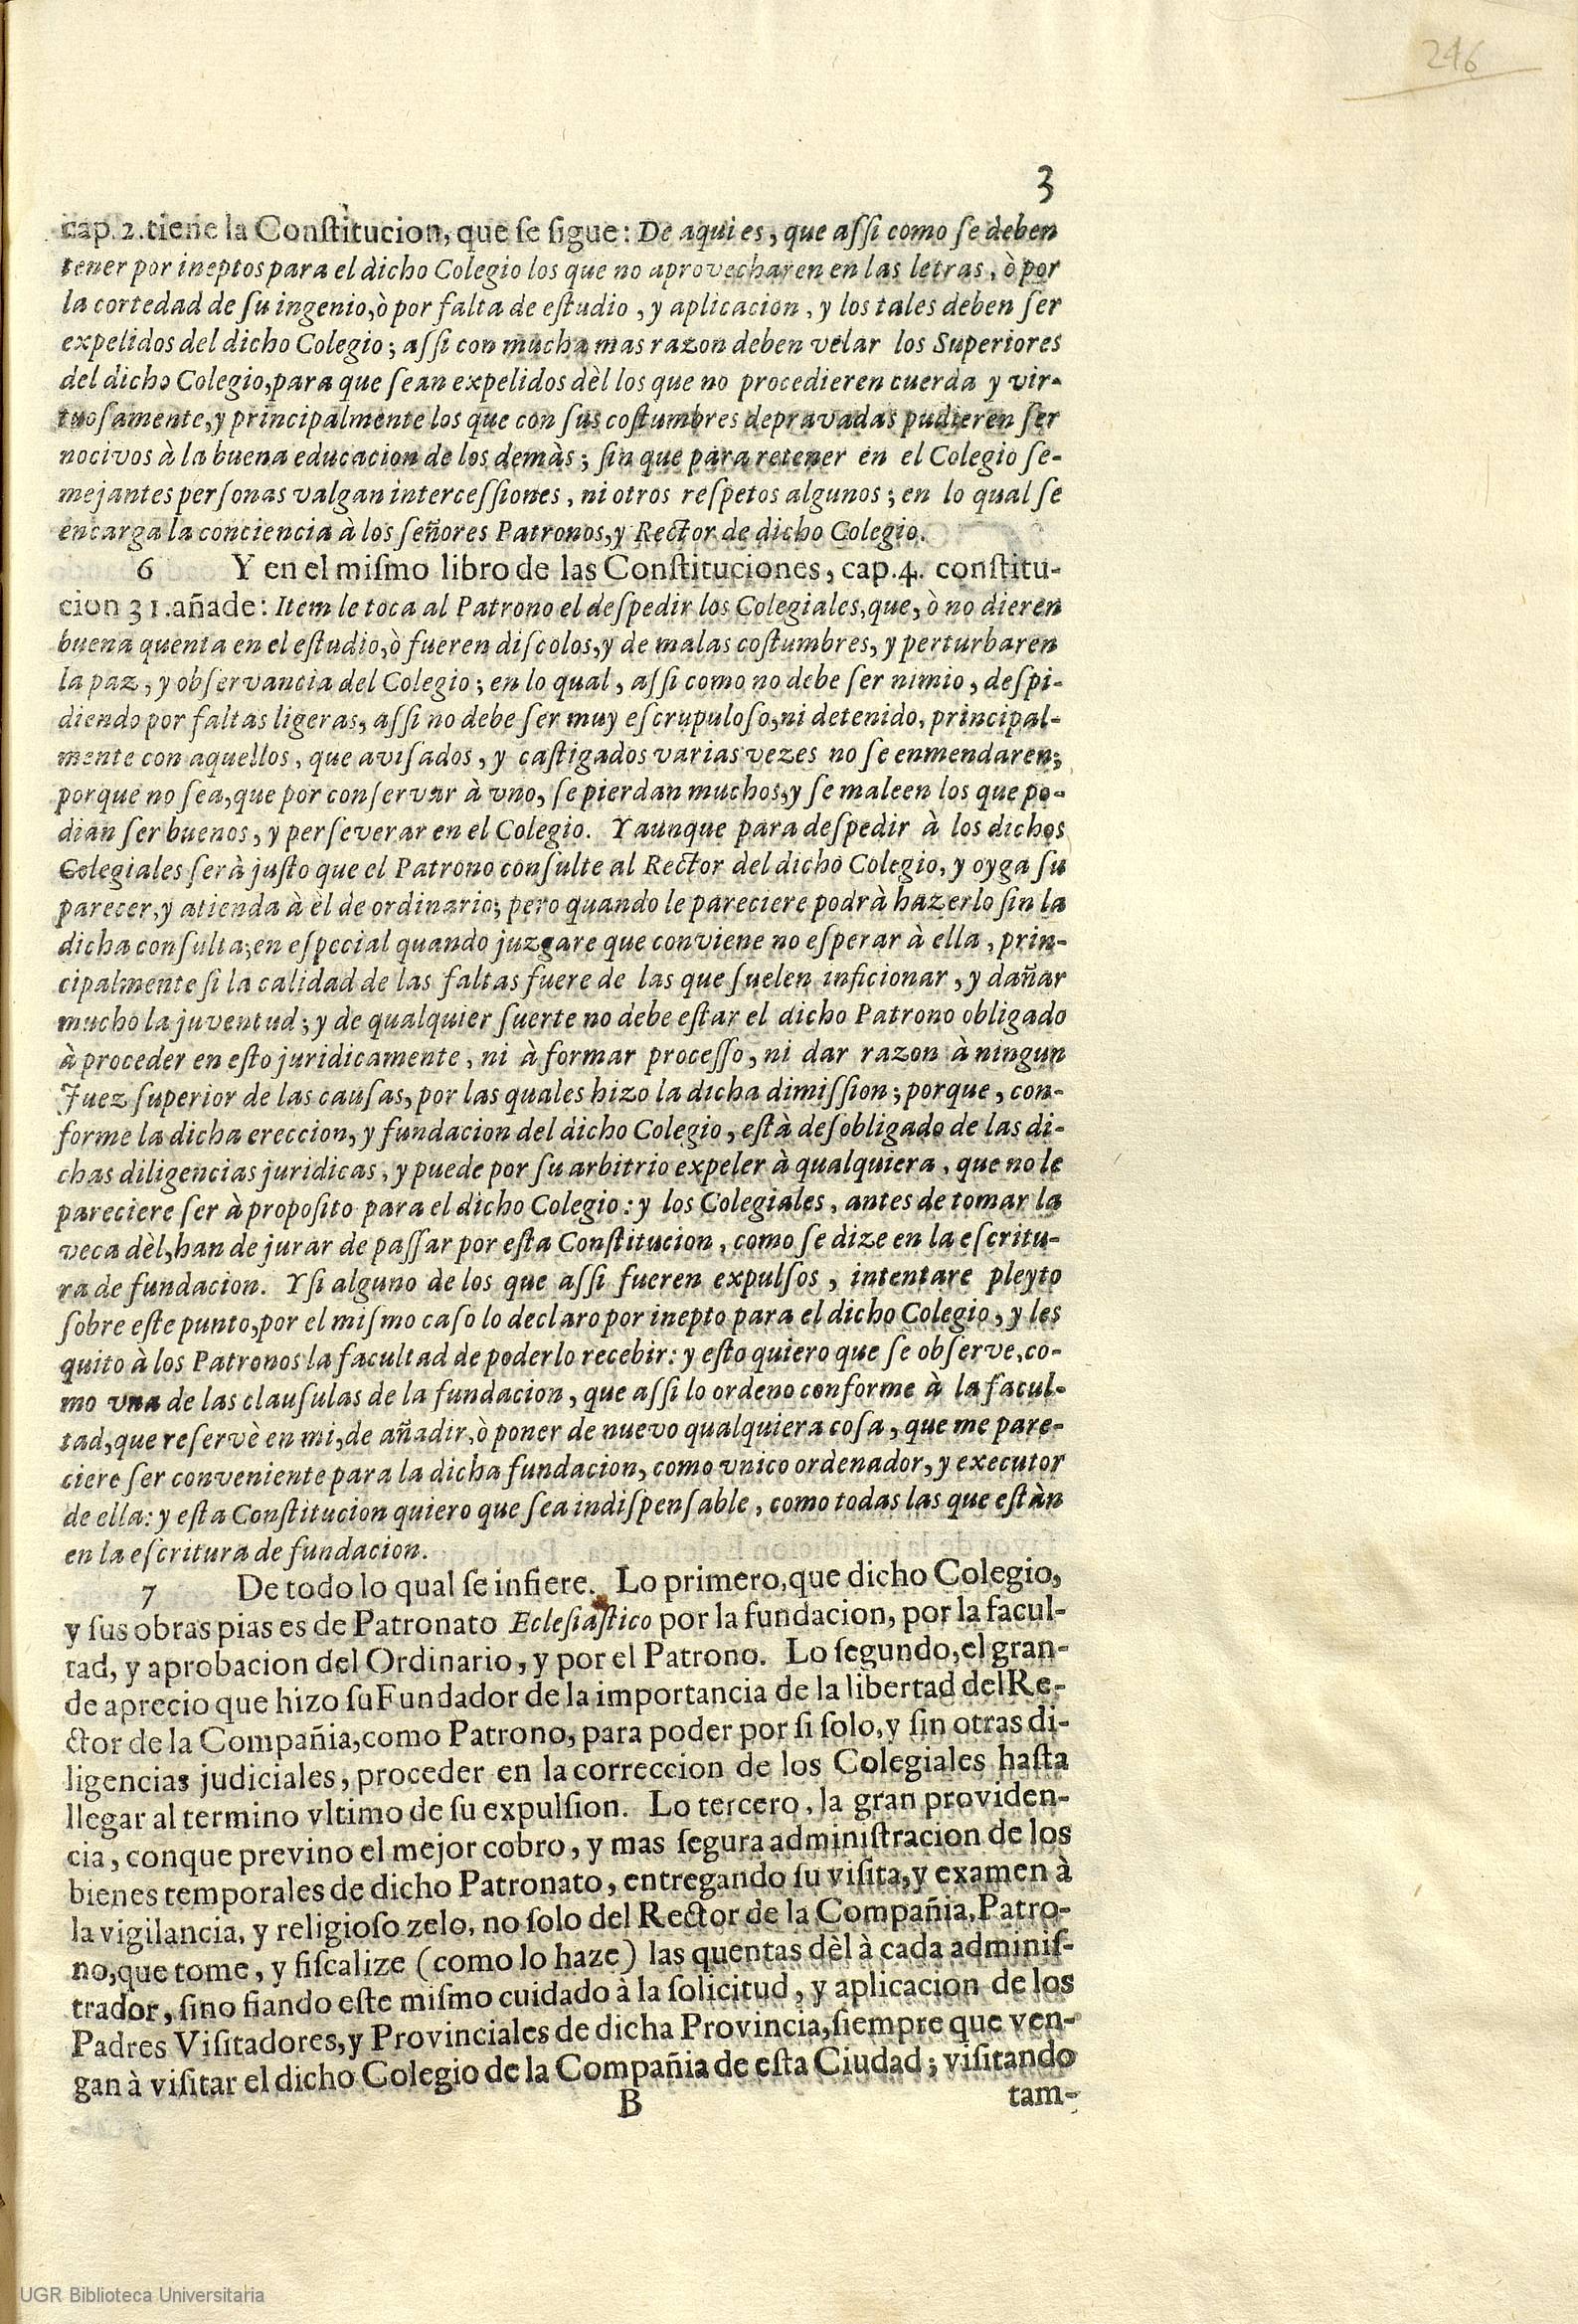 246
3
cap. 2. tiene la Conſtitucion, que ſe ſigue: De aqui es, que aſſi como ſe deben
tener por ineptos para el dicho Colegio los que no aprovecharen en las letras, ò por
la cortedad de ſu ingenio, ò por falta de eſtudio, y aplicacion, y los tales deben ſer
expelidos del dicho Colegio; aſſi con mucha mas razon deben velar los Superiores
del dicho Colegio, para que ſean expelidos dèl los que no procedieren cuerda y vir-
tuoſamente, y principalmente los que con ſus coſtumbres depravadas pudieren ſer
nocivos à la buena educacion de los demàs; ſin que para retener en el Colegio ſe-
mejantes perſonas valgan interceſſiones, ni otros reſpetos algunos; en lo qual ſe
encarga la conciencia à los ſeñores Patronos, y Rector de dicho Colegio.
6 Y en el miſmo libro de las Conſtituciones, cap. 4. conſtitu-
cion 31. añade: Item le toca al Patrono el deſpedir los Colegiales, que, ò no dieren
buena quenta en el eſtudio, ò fueren diſcolos, y de malas coſtumbres, y perturbaren
la paz, y obſervancia del Colegio; en lo qual, aſſi como no debe ſer nimio, deſpi-
diendo por faltas ligeras, aſſi no debe ſer muy eſcrupuloſo, ni detenido, principal-
mente con aquellos, que aviſados, y caſtigados varias vezes no ſe enmendaren;
porque no ſea, que por conſervar à vno, ſe pierdan muchos, y ſe maleen los que po-
dian ſer buenos, y perſeverar en el Colegio. Y aunque para deſpedir à los dichos
Colegiales ſerà juſto que el Patrono conſulte al Rector del dicho Colegio, y oyga ſu
parecer, y atienda à èl de ordinario; pero quando le pareciere podrà hazerlo ſin la
dicha conſulta; en eſpecial quando juzgare que conviene no eſperar à ella, prin-
cipalmente ſi la calidad de las faltas fuere de las que ſuelen inficionar, y dañar
mucho la juventud; y de qualquier ſuerte no debe eſtar el dicho Patrono obligado
à proceder en eſto juridicamente, ni à formar proceſſo, ni dar razon à ningun
Juez ſuperior de las cauſas, por las quales hizo la dicha dimiſſion; porque, con-
forme la dicha ereccion, y fundacion del dicho Colegio, eſtà deſobligado de las di-
chas diligencias juridicas, y puede por ſu arbitrio expeler à qualquiera, que no le
pareciere ſer à propoſito para el dicho Colegio: y los Colegiales, antes de tomar la
veca dèl, han de jurar de paſſar por eſta Conſtitucion, como ſe dize en la eſcritu-
ra de fundacion. Y ſi alguno de los que aſſi fueren expulſos, intentare pleyto
ſobre eſte punto, por el miſmo caſo lo declaro por inepto para el dicho Colegio, y les
quito à los Patronos la facultad de poderlo recebir: y eſto quiero que ſe obſerve, co-
mo vna de las clauſulas de la fundacion, que aſſi lo ordeno conforme à la facul-
tad, que reſervè en mi, de añadir, ò poner de nuevo qualquiera coſa, que me pare-
ciere ſer conveniente para la dicha fundacion, como vnico ordenador, y executor
de ella: y eſta Conſtitucion quiero que ſea indiſpenſable, como todas las que eſtàn
en la eſcritura de fundacion.
7 De todo lo qual ſe infiere. Lo primero, que dicho Colegio,
y ſus obras pias es de Patronato Ecleſiaſtico por la fundacion, por la facul-
tad, y aprobacion del Ordinario, y por el Patrono. Lo ſegundo, el gran-
de aprecio que hizo ſu Fundador de la importancia de la libertad del Re-
ctor de la Compañia, como Patrono, para poder por ſi ſolo, y ſin otras di-
ligencias judiciales, proceder en la correccion de los Colegiales haſta
llegar al termino vltimo de ſu expulſion. Lo tercero, la gran providen-
cia, conque previno el mejor cobro, y mas ſegura adminiſtracion de los
bienes temporales de dicho Patronato, entregando ſu viſita, y examen à
la vigilancia, y religioſo zelo, no ſolo del Rector de la Compañia, Patro-
no, que tome, y fiſcalize (como lo haze) las quentas dèl à cada adminiſ-
trador, ſino fiando eſte miſmo cuidado à la ſolicitud, y aplicacion de los
Padres Viſitadores, y Provinciales de dicha Provincia, ſiempre que ven-
gan à viſitar el dicho Colegio de la Compañia de eſta Ciudad; viſitando
B tam-
UGR Biblioteca Universitaria